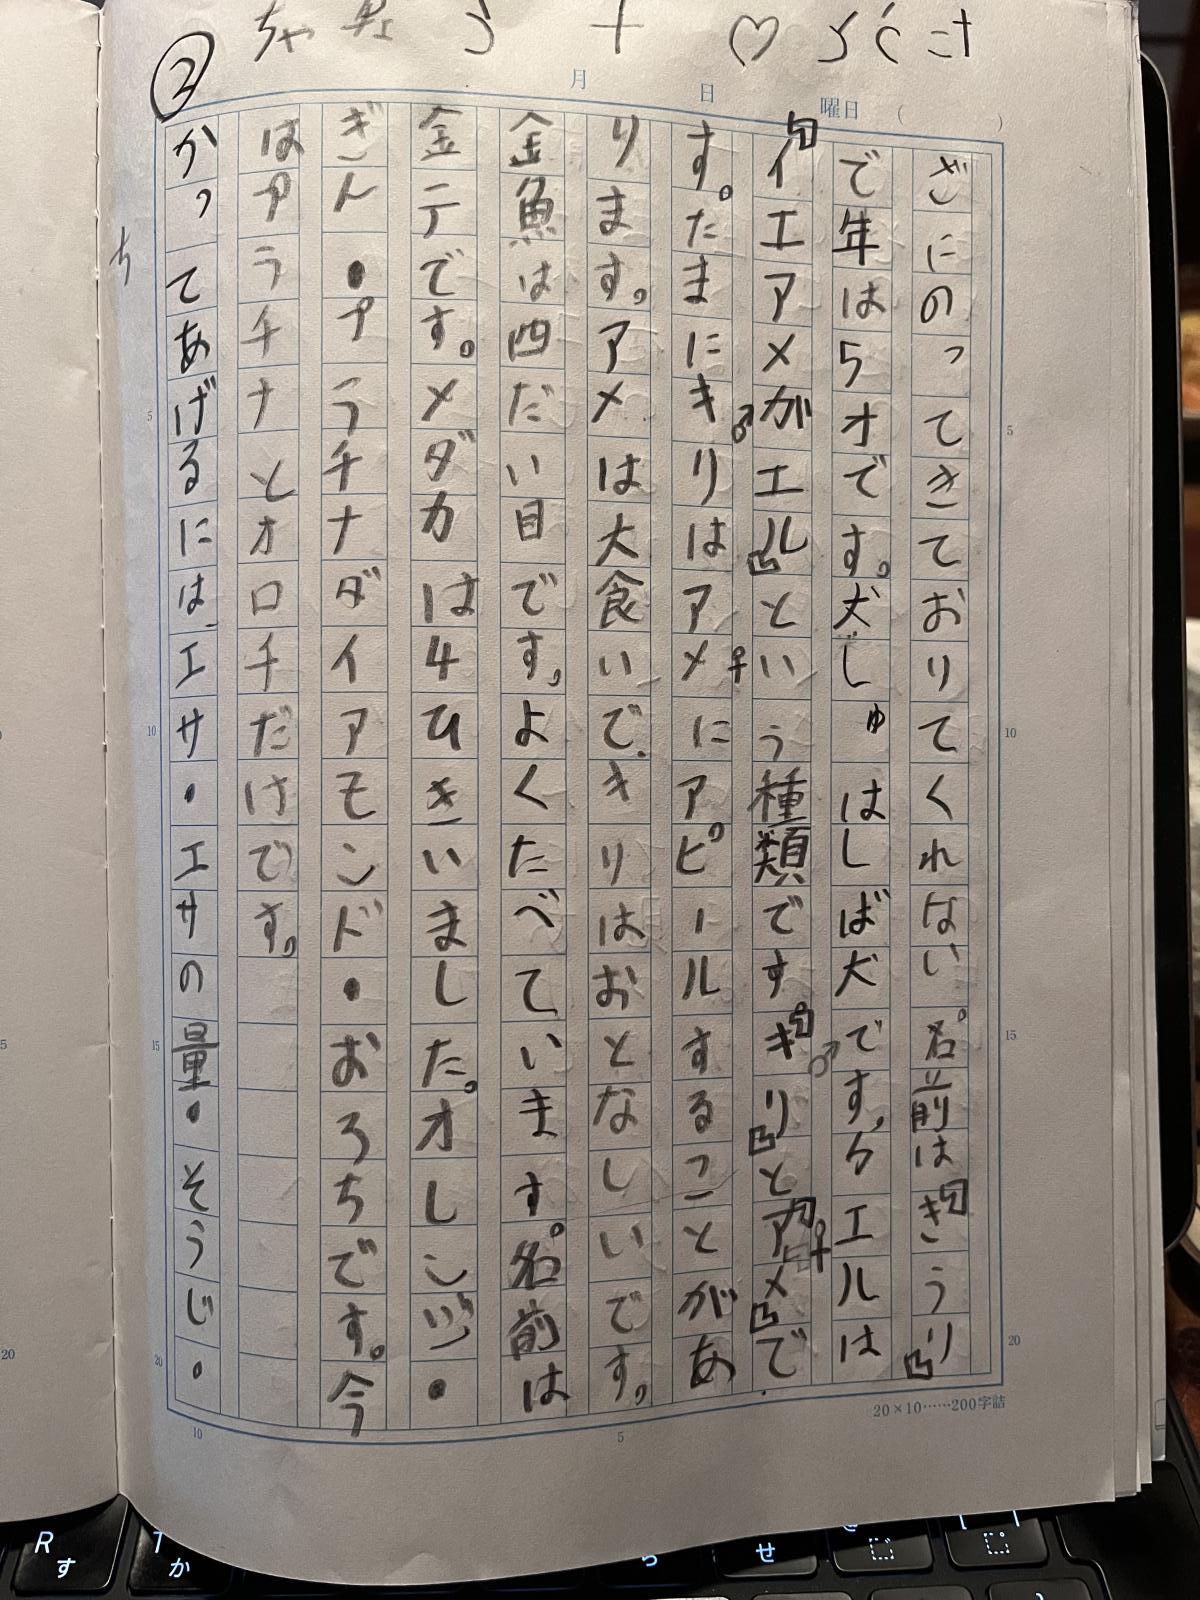 月 日 曜日 ( )
ざにのってきておりてくれない。名前は「きうり」
で年は5オです。犬しゅはしば犬です。カエルは
「イエアメガエル」という種類です「キ♂リ」と「アメ♀」で
す。たまにキ♂リはアメ♀にアピールすることがあ
ります。アメは大食いで、キリはおとなしいです。
金魚は四だい目です。よくたべています。名前は
金テです。メダカは4ひきいました。オレンジ・
ぎん・プラチナダイアモンド・おろちです。今
はプラチナとオロチだけです。
かってあげるには、エサ・エサの量・そうじ・
②
20×10……200字詰
5
10
15
20
5
10